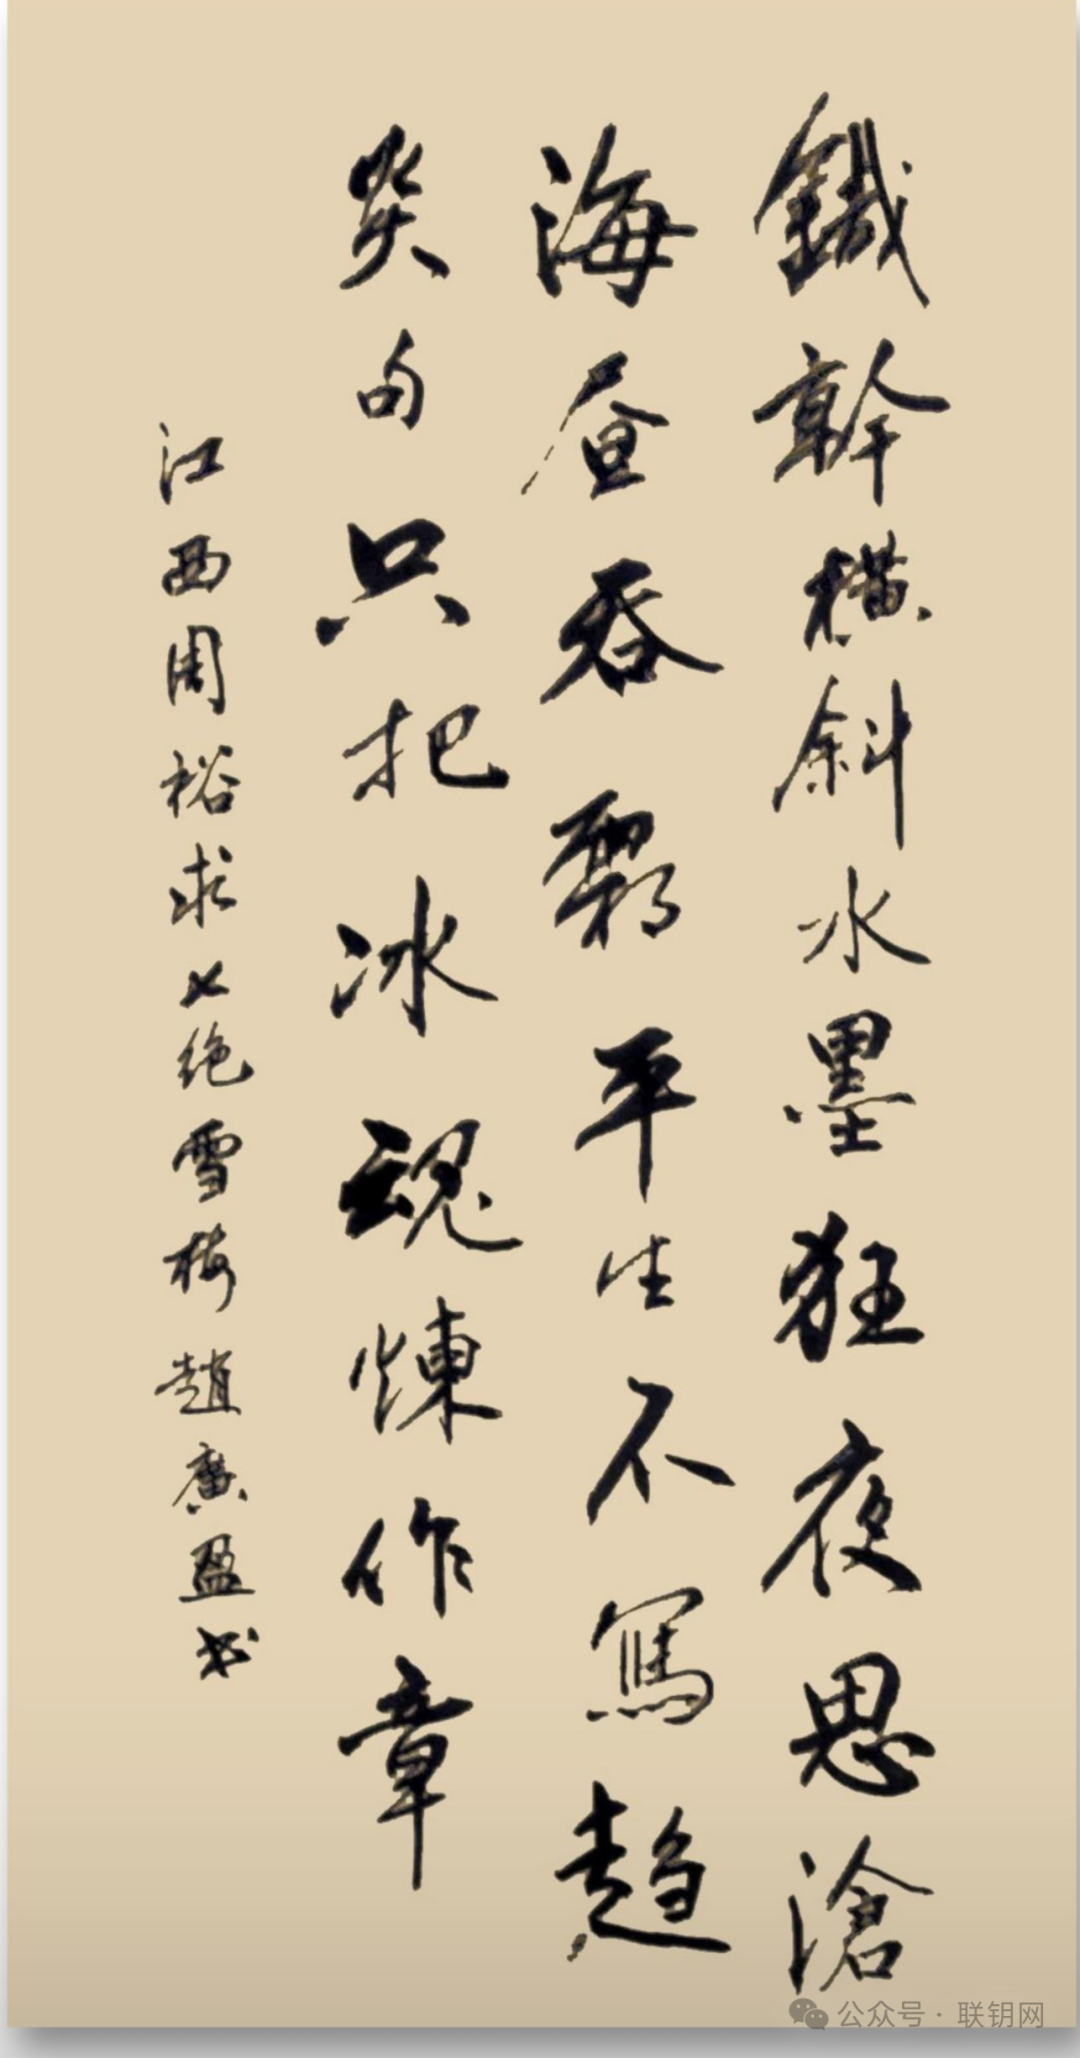 鐵幹橫斜水墨狂夜思滄
海昼吞霜平生不寫趋
炎句只把冰魂煉作章
江西周裕求七绝雪梅趙廣盈书
公众号 · 联钥网